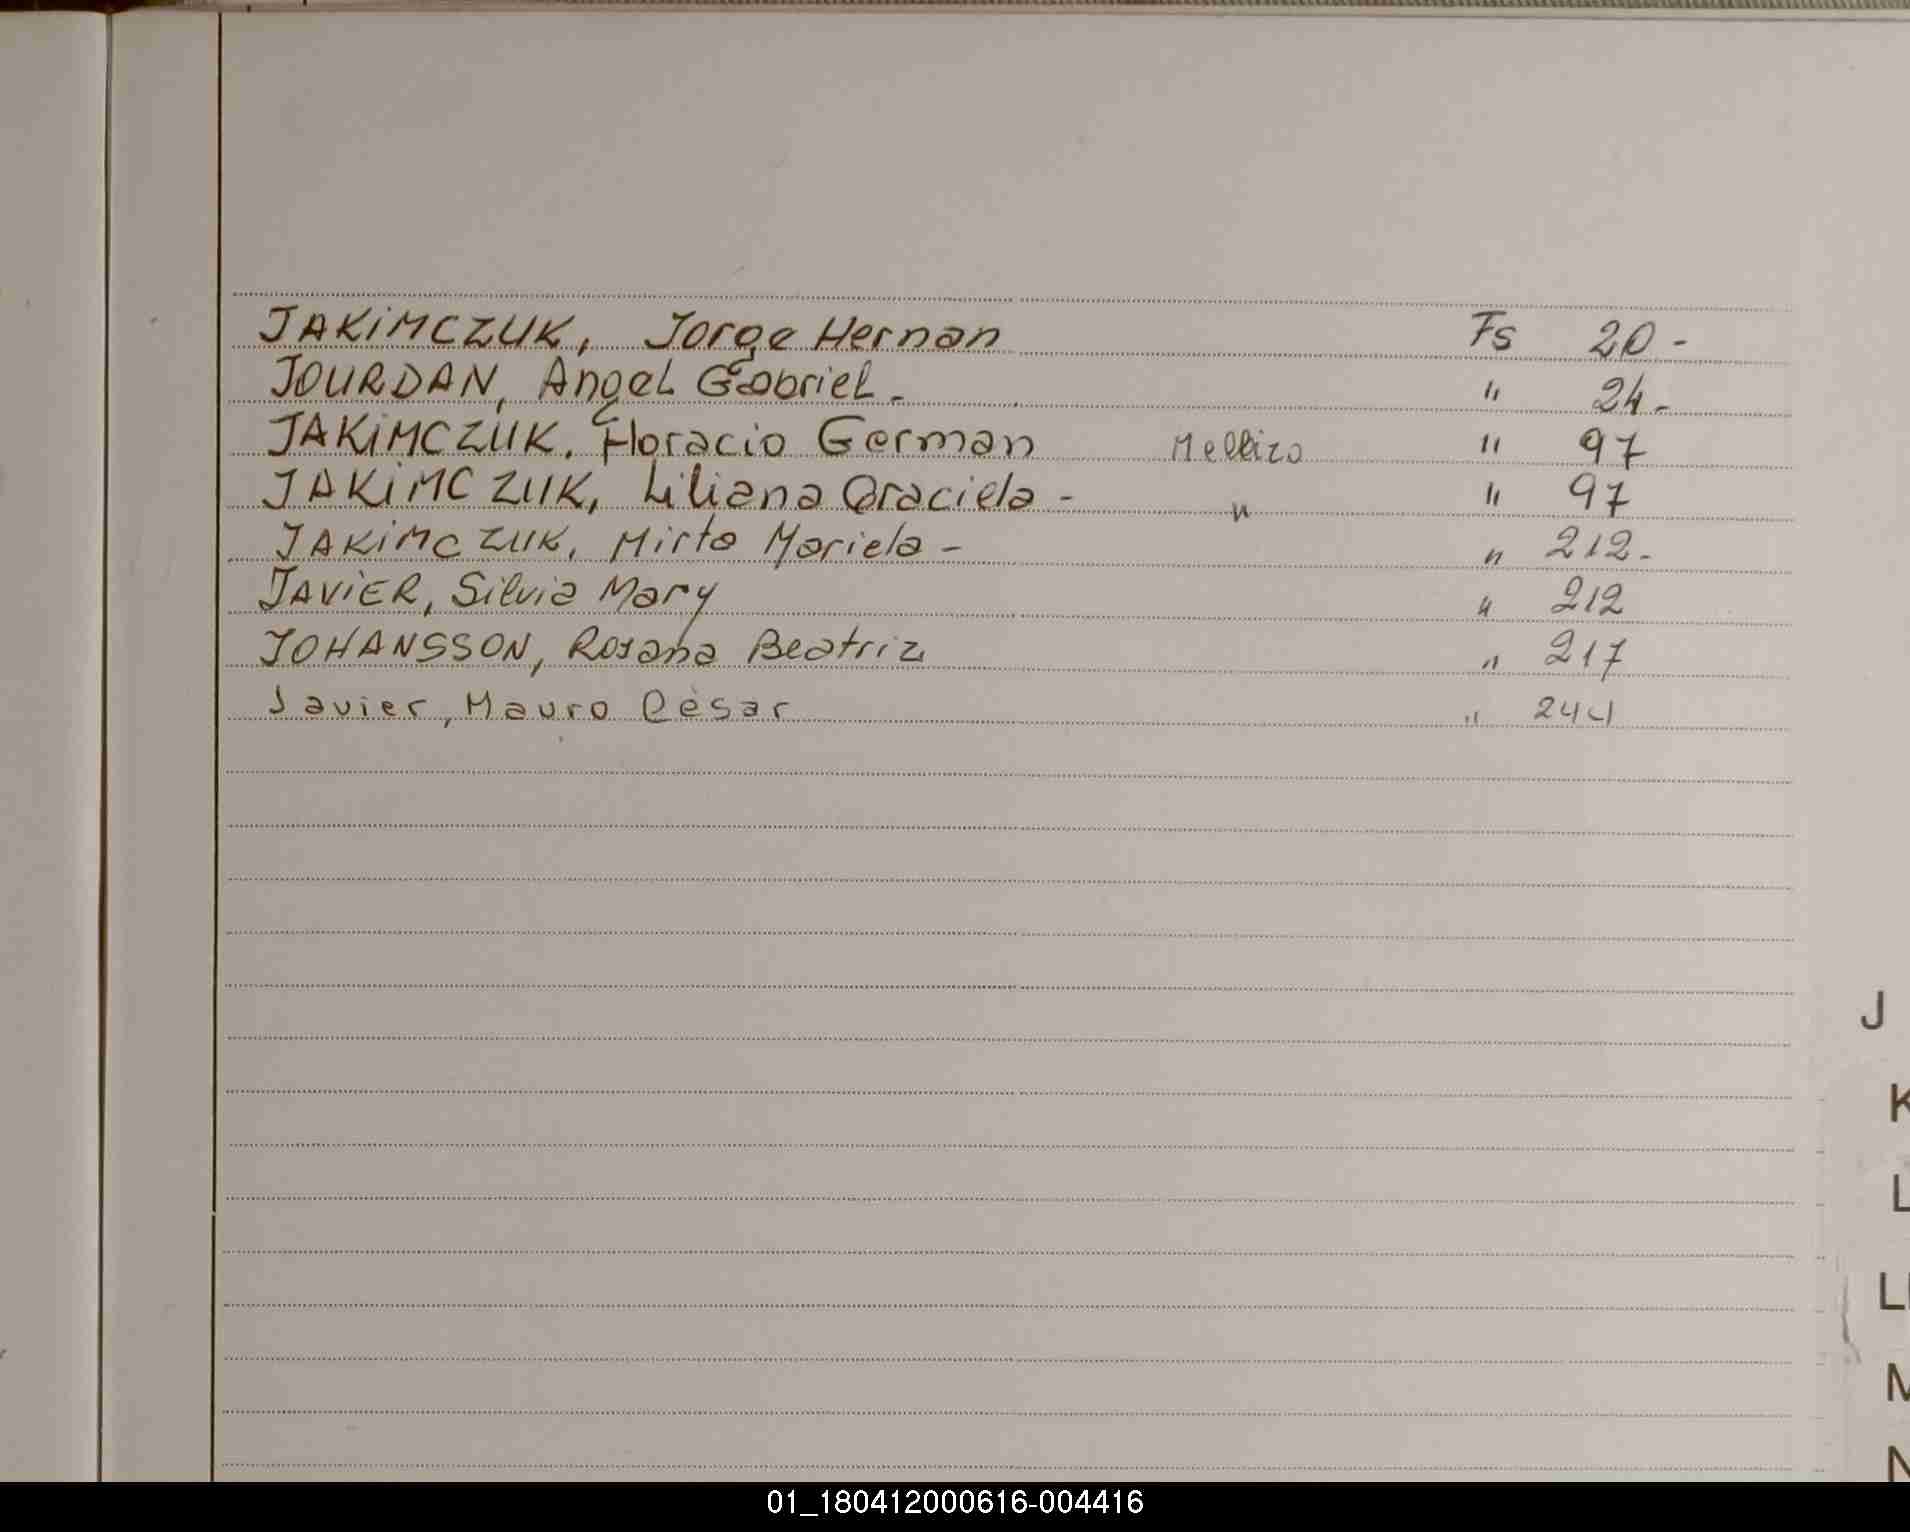 JAKIMCZUK, Jorge Hernan Fs 20-
JOURDAN, Angel Gabriel- " 24-
JAKIMCZUK, Horacio German Mellizo " 97
JAKIMCZUK, Liliana Graciela- " " 97
JAKIMCZUK, Mirta Mariela- " 212-
JAVIER, Silvia Mary " 212
JOHANSSON, Rosana Beatriz " 217
Javier, Mauro César " 244
J
K
L
LL
M
N
01_180412000616-004416